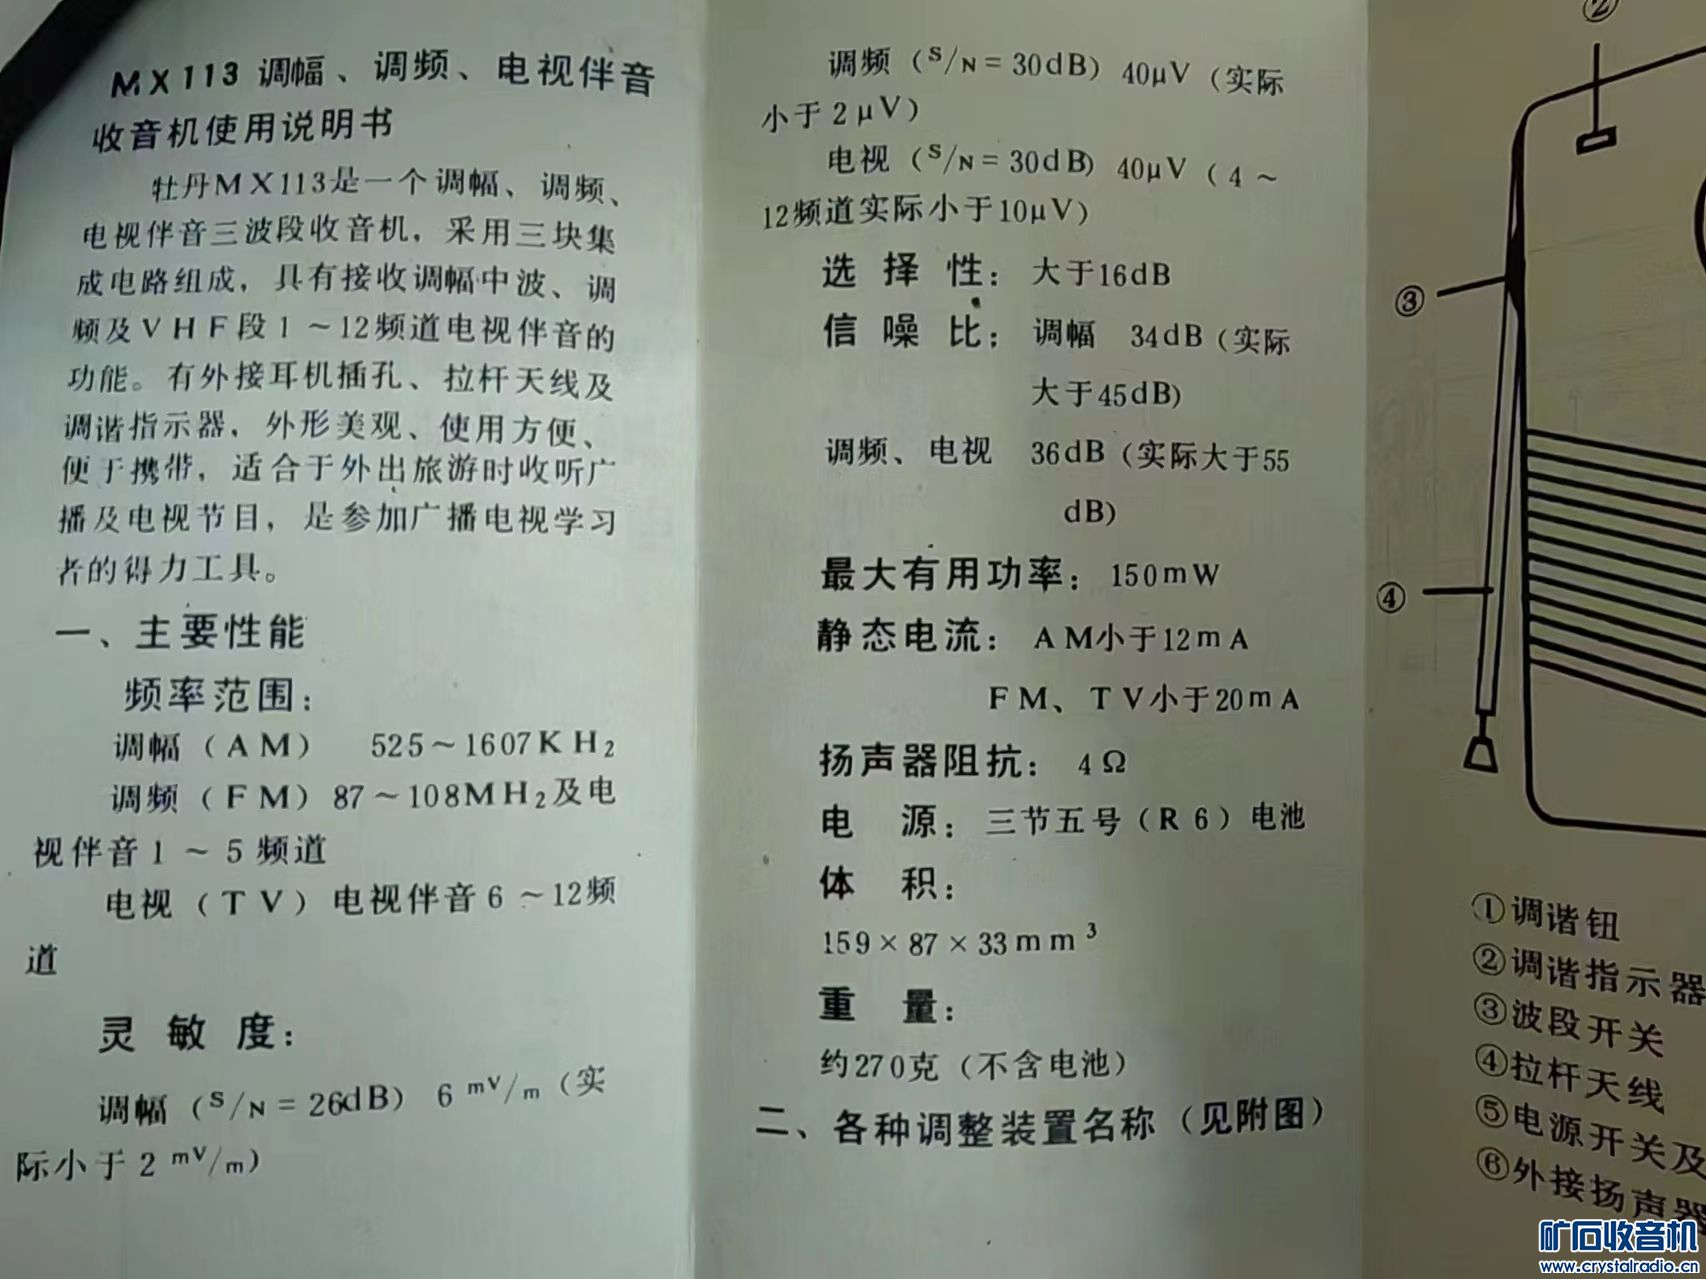 MX113 调幅、调频、电视伴音
收音机使用说明书
牡丹MX113是一个调幅、调频、
电视伴音三波段收音机，采用三块集
成电路组成，具有接收调幅中波、调
频及VHF段1～12频道电视伴音的
功能。有外接耳机插孔、拉杆天线及
调谐指示器，外形美观、使用方便、
便于携带，适合于外出旅游时收听广
播及电视节目，是参加广播电视学习
者的得力工具。
一、主要性能
频率范围：
调幅（AM） 525～1607KH₂
调频（FM）87～108MH₂及电
视伴音1～5频道
电视（TV）电视伴音6～12频
道
灵敏度：
调幅（S/N=26dB） 6 mV/m（实
际小于2 mV/m）
调频（S/N=30dB）40μV（实际
小于2μV）
电视（S/N=30dB）40μV（4～
12频道实际小于10μV）
选择性：大于16dB
信噪比：调幅 34dB（实际
大于45dB）
调频、电视 36dB（实际大于55
dB）
最大有用功率：150mW
静态电流：AM小于12mA
FM、TV小于20mA
扬声器阻抗：4Ω
电 源：三节五号（R6）电池
体 积：
159×87×33mm³
重 量：
约270克（不含电池）
二、各种调整装置名称（见附图）
②
③
④
①调谐钮
②调谐指示器
③波段开关
④拉杆天线
⑤电源开关及
⑥外接扬声器
矿石收音机
www.crystalradio.cn